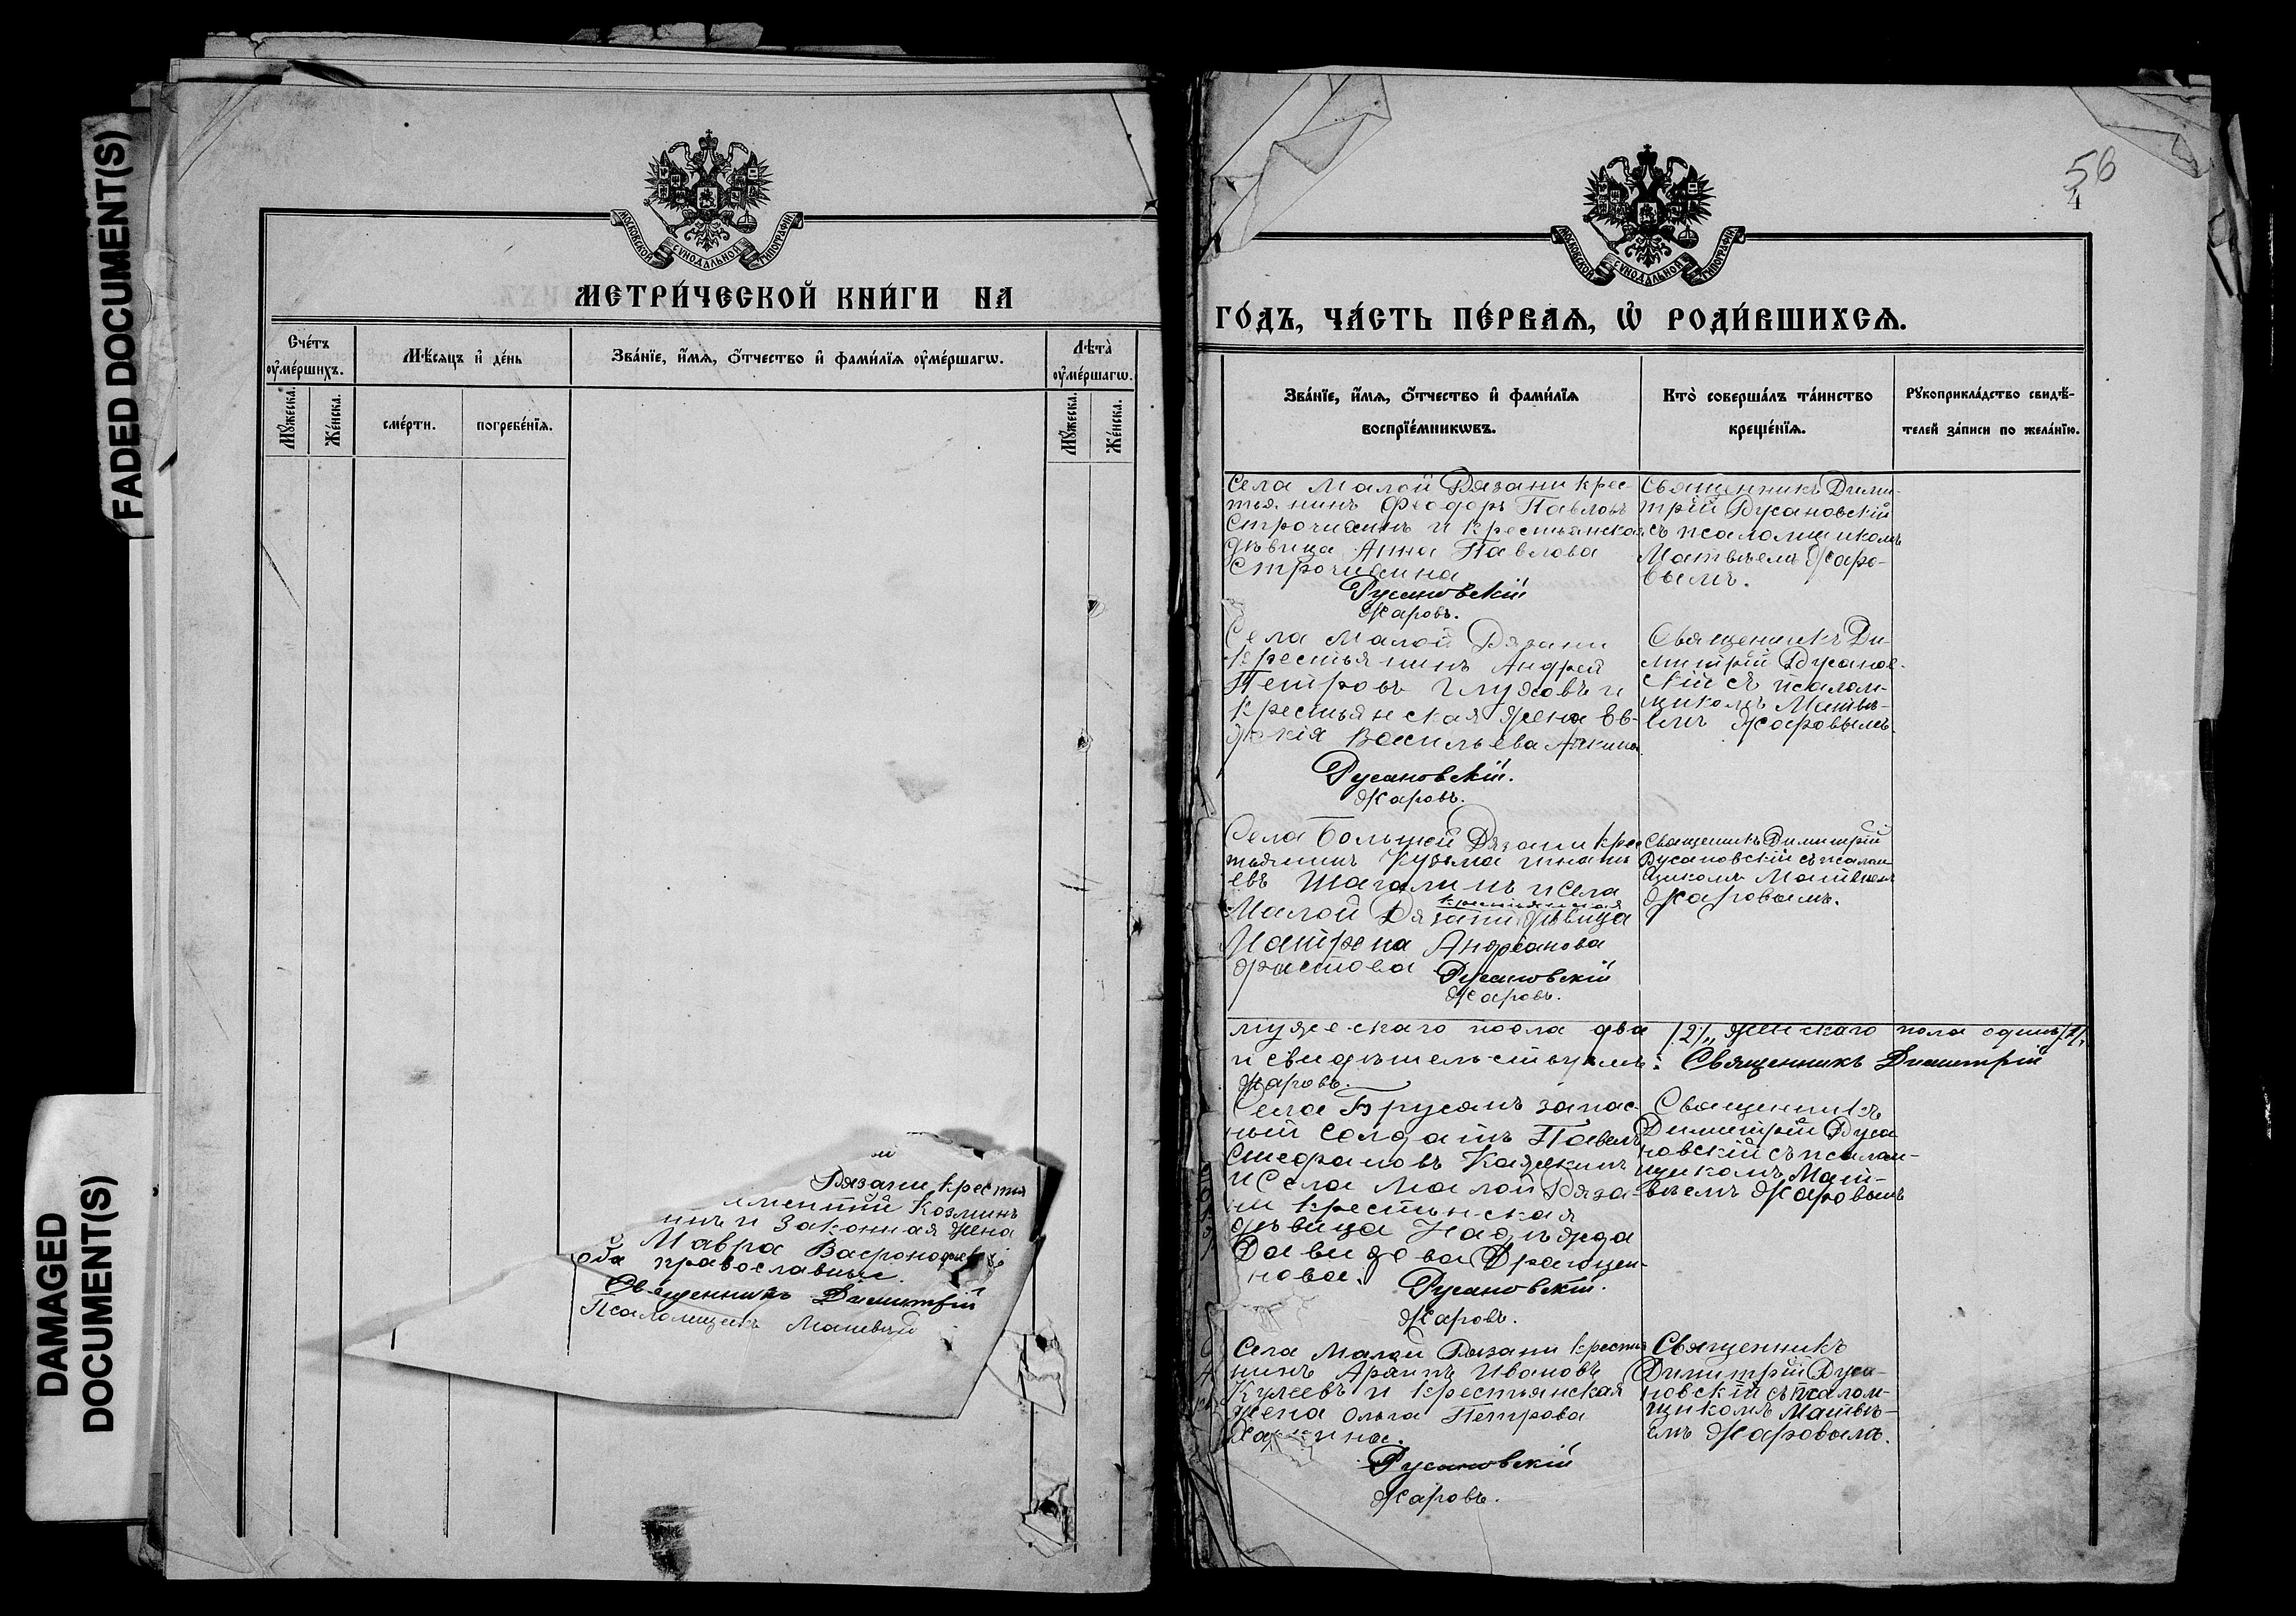 FADED DOCUMENT(S)
DAMAGED
DOCUMENT(S)
МОСКОВСКОЙ СѴНОДАЛЬНОЙ ТИПОГРАФІИ
МЕТРИ́ЧЕСКОЙ КНИ́ГИ НА
Сче́тъ оу҆ме́ршихъ.
Мѣ́сяцъ и҆ де́нь
Зва́нїе, и҆́мѧ, ѻ҆́тчество и҆ фами́лїѧ оу҆ме́ршагѡ.
Лѣ́та̀ оу҆ме́ршагѡ.
Мꙋ́жеска.
Же́нска.
сме́рти.
погребе́нїѧ.
Мꙋ́жеска.
Же́нска.
Вязани крестья
Козминъ
и законная жена
Мавра
оба православные.
Священникъ Димитрій
Псаломщикъ Матвѣй
56
4
МОСКОВСКОЙ СѴНОДАЛЬНОЙ ТИПОГРАФІИ
ГО́ДЪ, ЧА́СТЬ ПЕ́РВАѦ, Ѡ҆ РОДИ́ВШИХСѦ.
Зва́нїе, и҆́мѧ, ѻ҆́тчество и҆ фами́лїѧ
воспрїе́мникѡвъ.
Кто̀ соверша́лъ та́инство
креще́нїѧ.
Рꙋкоприкла́дство свидѣ́-
телей за́писи по жела́нїю.
Села Малой Рязани крес-
тьянинъ Феодоръ Павловъ
и крестьянская
дѣвица Анна Павлова
Русановскій
Жаровъ.
Священникъ Дими-
трій Русановскій
съ псаломщикомъ
Матвѣемъ Жаро-
вымъ.
Села Малой Рязани
крестьянинъ Андрей
Петровъ Глуховъ и
крестьянская жена Ев-
докія Васильева
Русановскій.
Жаровъ.
Священникъ Ди-
митрій Русанов-
скій съ псалом-
щикомъ Матвѣ-
емъ Жаровымъ.
Села Большой Рязани крес
тьянинъ Кузьма Игнать
евъ Шагалинъ и села
крестьянская
Малой Рязани дѣвица
Матрена Андреанова
Русановскій
Жаровъ.
Священникъ Димитрій
Русановскій съ псалом-
щикомъ Матвѣемъ
Жаровымъ.
мужескаго пола два /2/, женскаго пола одинъ /1/,
и свидѣтельствуемъ: Священникъ Димитрій
Жаровъ.
Села Брусянъ запас-
ный солдатъ Павелъ
Стефановъ
и села Малой Ряза-
ни крестьянская
дѣвица Надежда
Давидова
Русановскій.
Жаровъ.
Священникъ
Димитрій Руса
новскій съ псалом-
щикомъ Мат-
вѣемъ Жаровымъ
Села Малой Рязани крестья
нинъ Архипъ Ивановъ
Кулеевъ и крестьянская
жена Ольга Петрова
Русановскій
Жаровъ.
Священникъ
Димитрій Руса-
новскій съ псалом-
щикомъ Матвѣ-
емъ Жаровымъ.